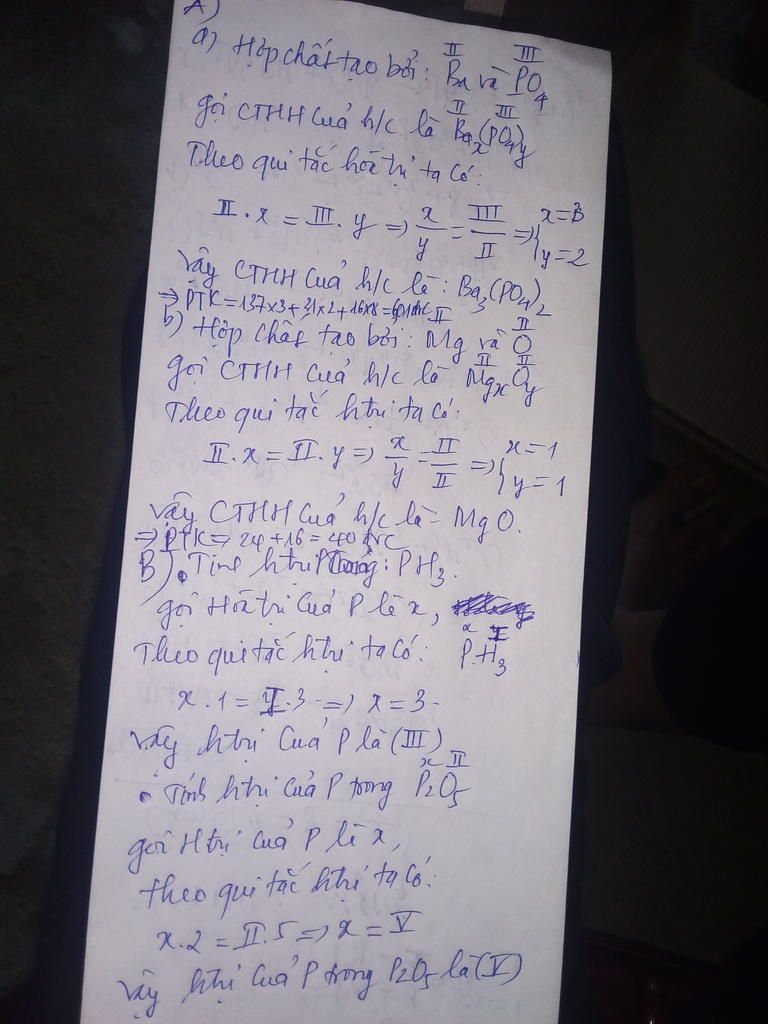 A)
a) Hợp chất tạo bởi: Ba và PO4
II III
gọi CTHH của h/c là Bax(PO4)y
II III
Theo qui tắc hóa trị ta có:
II.x = III.y => x/y = III/II => { x=3 y=2
vậy CTHH của h/c là: Ba3(PO4)2
=> PTK = 137x3+31x2+16x8=601đvC
b) Hợp chất tạo bởi: Mg và O
II II
gọi CTHH của h/c là MgxOy
II II
Theo qui tắc htrị ta có:
II.x = II.y => x/y = II/II => { x=1 y=1
vậy CTHH của h/c là = MgO.
=> PTK => 24+16=40 đvC
B) . Tính htrị P trong: PH3.
gọi Hóa trị của P là x,
Theo qui tắc htrị ta có: PH3
x I
x.1 = I.3 => x = 3.
vậy htrị của P là (III)
• Tính htrị của P trong P2O5
x II
gọi Htrị của P là x,
theo qui tắc htrị ta có:
x.2 = II.5 => x = V
vậy htrị của P trong P2O5 là (V)